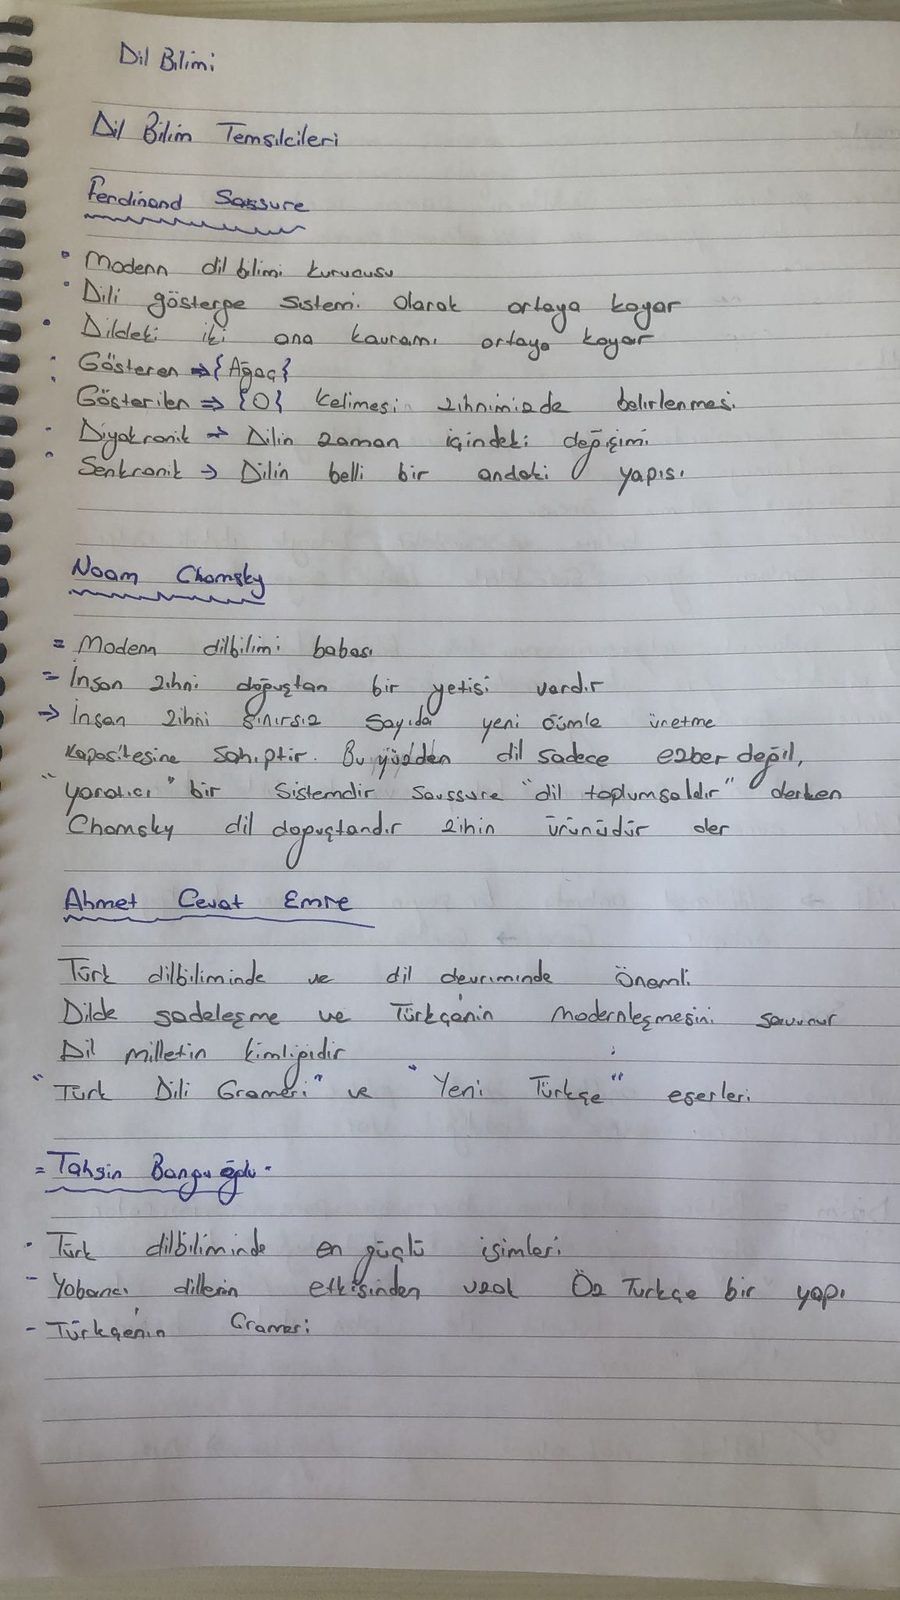 Dil Bilimi
Dil Bilim Temsilcileri
Ferdinand Sassure
• Modern dil bilimi kurucusu
• Dili gösterge sistemi olarak ortaya koyar
• Dildeki iki ana kavramı ortaya koyar
: Gösteren ⇒ {Ağaç}
Gösterilen ⇒ {O} kelimesi zihnimizde belirlenmesi
• Diyakronik → Dilin zaman içindeki değişimi
• Senkronik → Dilin belli bir andaki yapısı
Noam Chomsky
= Modern dilbilimi babası
= İnsan zihni doğuştan bir yetisi vardır
→ İnsan zihni sınırsız sayıda yeni cümle üretme
kapasitesine sahiptir. Bu yüzden dil sadece ezber değil,
"yaratıcı" bir sistemdir Saussure "dil toplumsaldır" derken
Chomsky dil doğuştandır zihin ürünüdür der
Ahmet Cevat Emre
Türk dilbiliminde ve dil devriminde önemli
Dilde sadeleşme ve Türkçe'nin modernleşmesini savunur
Dil milletin kimliğidir
"Türk Dili Grameri" ve "Yeni Türkçe" eserleri
= Tahsin Banguoğlu
• Türk dilbiliminde en güçlü isimleri
- Yabancı dillerin etkisinden uzak Öz Türkçe bir yapı
- Türkçe'nin Grameri